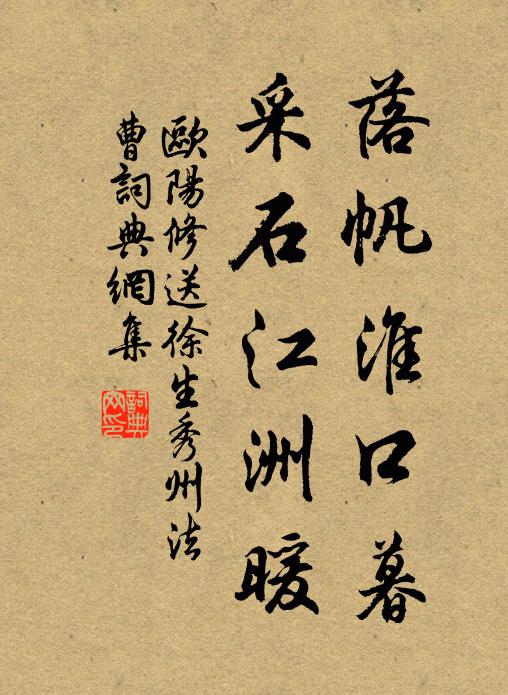 落帆淮口暮
采石江洲暖
歐陽修送徐生秀州法
曹詞典網集
詞典
网印